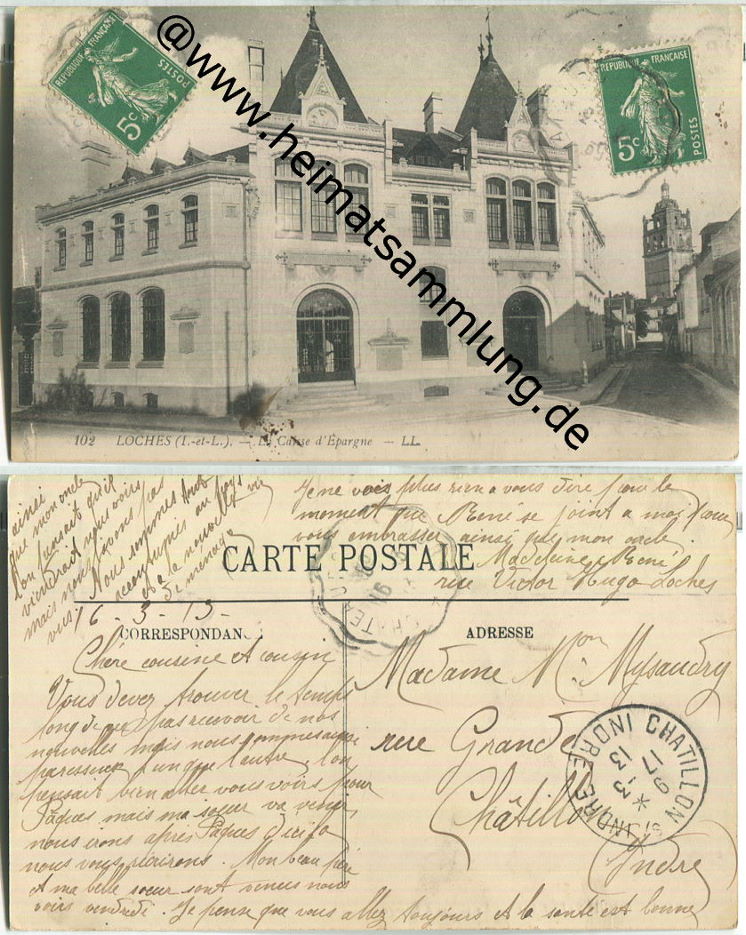 RÉPUBLIQUE FRANÇAISE
POSTES
5c
@www.heimatsammlung.de
RÉPUBLIQUE FRANÇAISE
5c
POSTES
102 LOCHES (I.-et-L.). — La Caisse d'Epargne — LL
Je ne vois plus rien a vous dire pour le
moment que René se joint a moi pour
vous embrasser ainsi que mon oncle.
Madeleine René
rue Victor Hugo Loches
ainsi
que mon oncle
L'on pensait qu'il
viendrait nous voir
mais nous avons pas
vu. Nous sommes
occupés au
et a la nouvelle vie
de ménage
CARTE POSTALE
16-3-13-
CORRESPONDANCE
ADRESSE
Chère cousine et cousin
Vous devez trouver le temps
long de ne pas recevoir de nos
nouvelles mais nous sommes aussi
paresseux l'un que l'autre, l'on
pensait bien aller vous voir pour
Pâques mais ma sœur va venir
nous irons après Pâques d'ici la
nous vous écrirons. Mon beau père
et ma belle sœur sont venus nous
voir vendredi. Je pense que vous allez toujours et la santé est bonne
Madame Mon Mysaudry
rue Grande
Châtillon
Indre
CHATILLON S. INDRE
INDRE
17-3
13